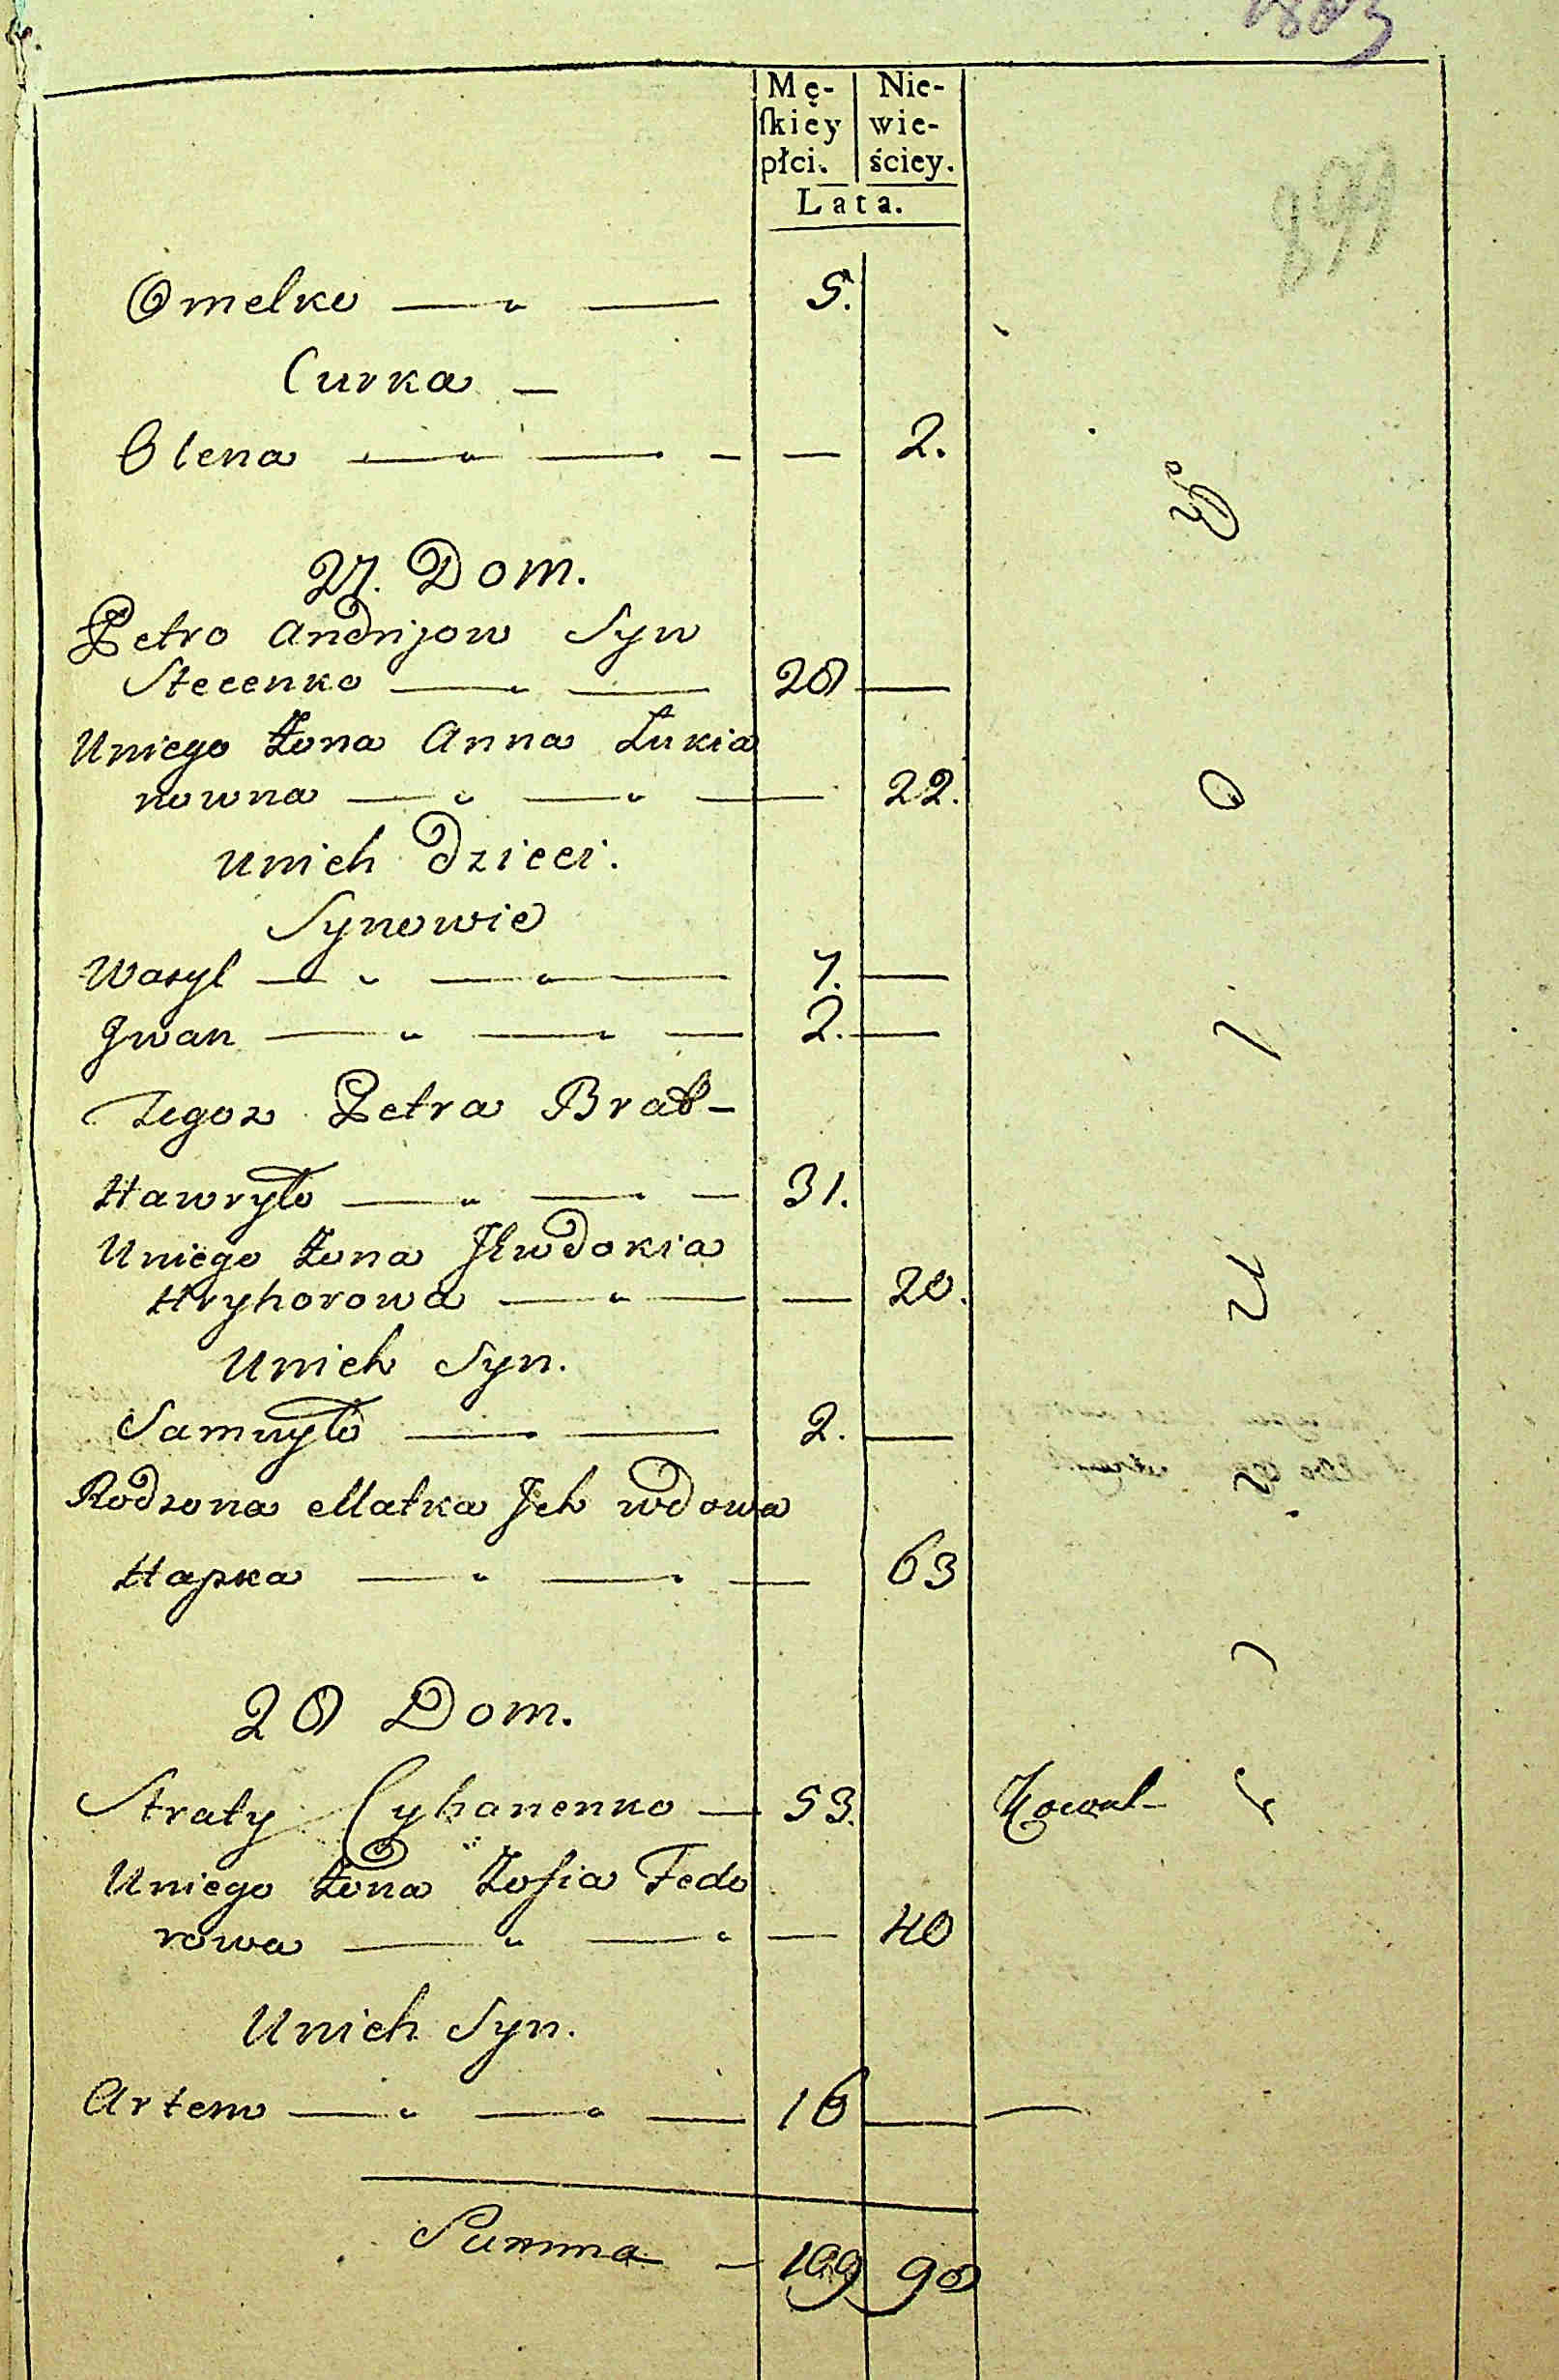 Mę- Nie-
ſkiey wie-
płci. ściey.
Lata.
Omelko — „ — 5.
Curka —
Olena — „ — - — 2.
27. Dom.
Petro Andrijow Syn
Stecenko — „ — 28 —
Uniego Żona Anna Łukia
nowna — „ — „ — 22.
Unich Dzieci.
Synowie
Wasyl — „ — „ — 7. —
Jwan — „ — „ — 2. —
Tegoz Petra Brat —
Hawryło — „ — „ — 31.
Uniego Żona Jewdokia
Hryhorowa — „ — — 20.
Unich Syn.
Samuyło — — 2. —
Rodzona Matka Jch wdowa
Hapka — „ — „ — 63
28 Dom.
Straty Cyhanenko — 53. Kowal —
Uniego Żona Zofia Fedo
rowa — „ — „ — 40
Unich Syn.
Artem — „ — „ — 16 — —
Summa — 109 98